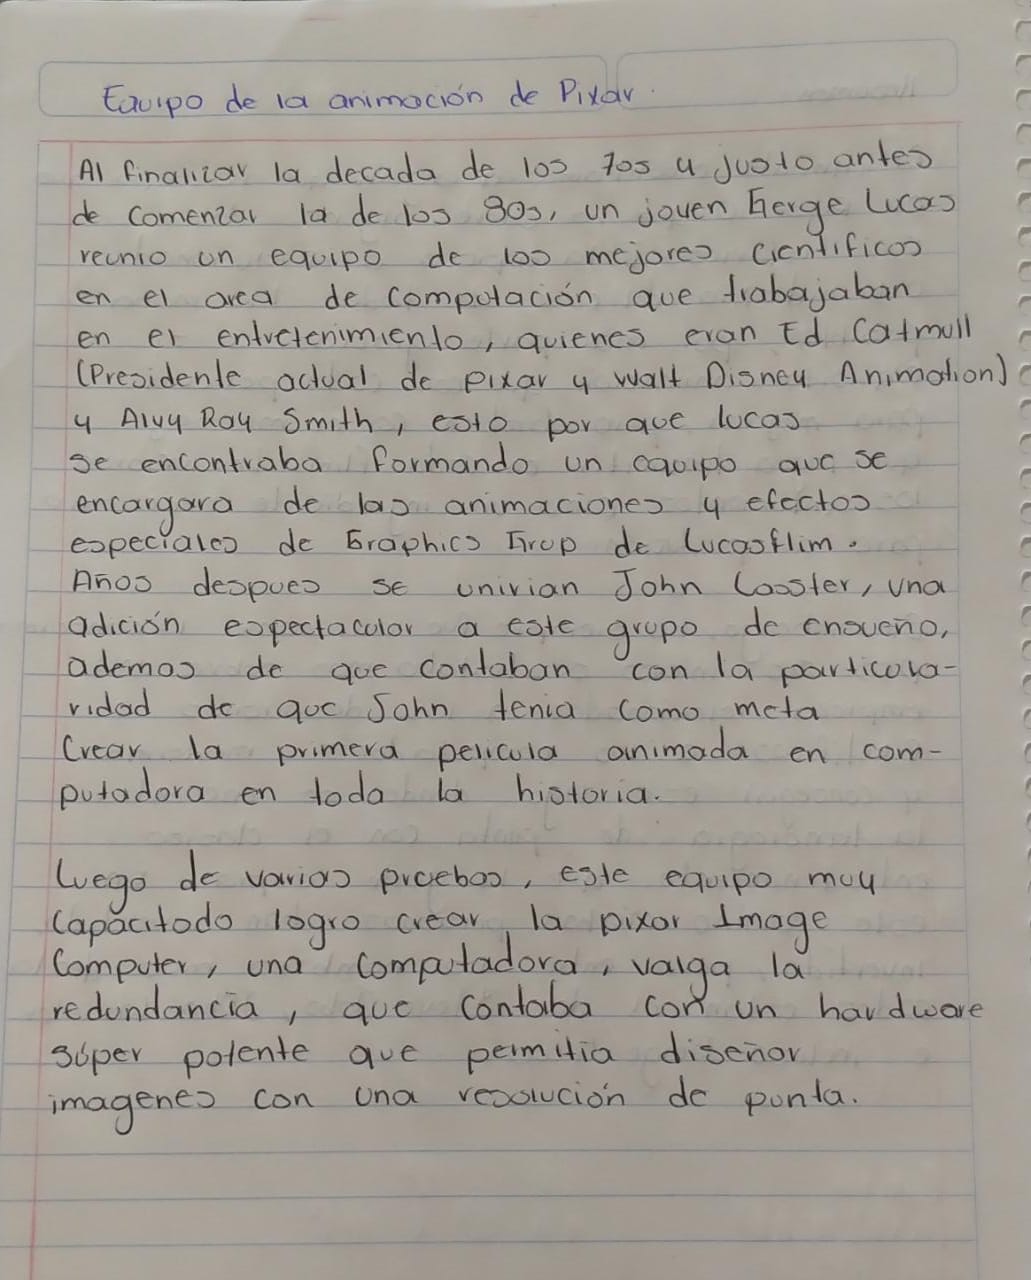 Equipo de la animación de Pixar.
Al finalizar la decada de los 70s y justo antes
de comenzar la de los 80s, un joven Gerge Lucas
reunio un equipo de los mejores cientificos
en el area de computación que trabajaban
en el entretenimiento, quienes eran Ed Catmull
(Presidente actual de pixar y Walt Disney Animation)
y Alvy Ray Smith, esto por que lucas
se encontraba formando un equipo que se
encargara de las animaciones y efectos
especiales de Graphics Grup de Lucasflim.
Años despues se unirian John Lasster, una
adición espectacular a este grupo de ensueño,
ademas de que contaban con la particula-
ridad de que John tenia como meta
Crear la primera pelicula animada en com-
putadora en toda la historia.
Luego de varias pruebas, este equipo muy
Capacitado logro crear la pixar Image
Computer, una computadora, valga la
redundancia, que contaba con un hardware
súper potente que permitia diseñar
imagenes con una resolución de punta.